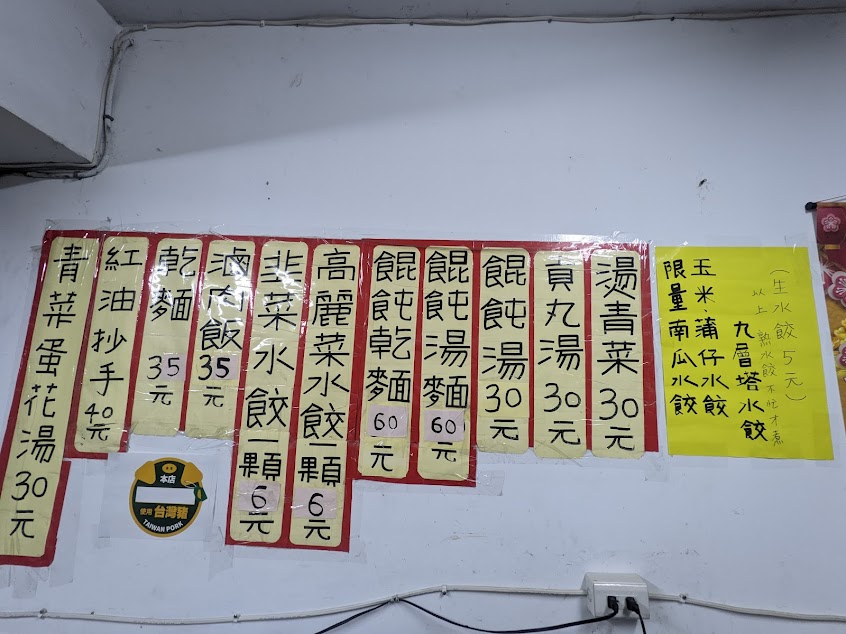 (生水餃5元)
以上熟水餃不忙才煮
九層塔水餃
玉米.蒲仔水餃
限量南瓜水餃
燙青菜30元
貢丸湯30元
餛飩湯30元
餛飩湯麵60元
餛飩乾麵60元
高麗菜水餃一顆6元
韭菜水餃一顆6元
滷肉飯35元
乾麵35元
紅油抄手40元
青菜蛋花湯30元
本店
使用台灣豬
TAIWAN PORK